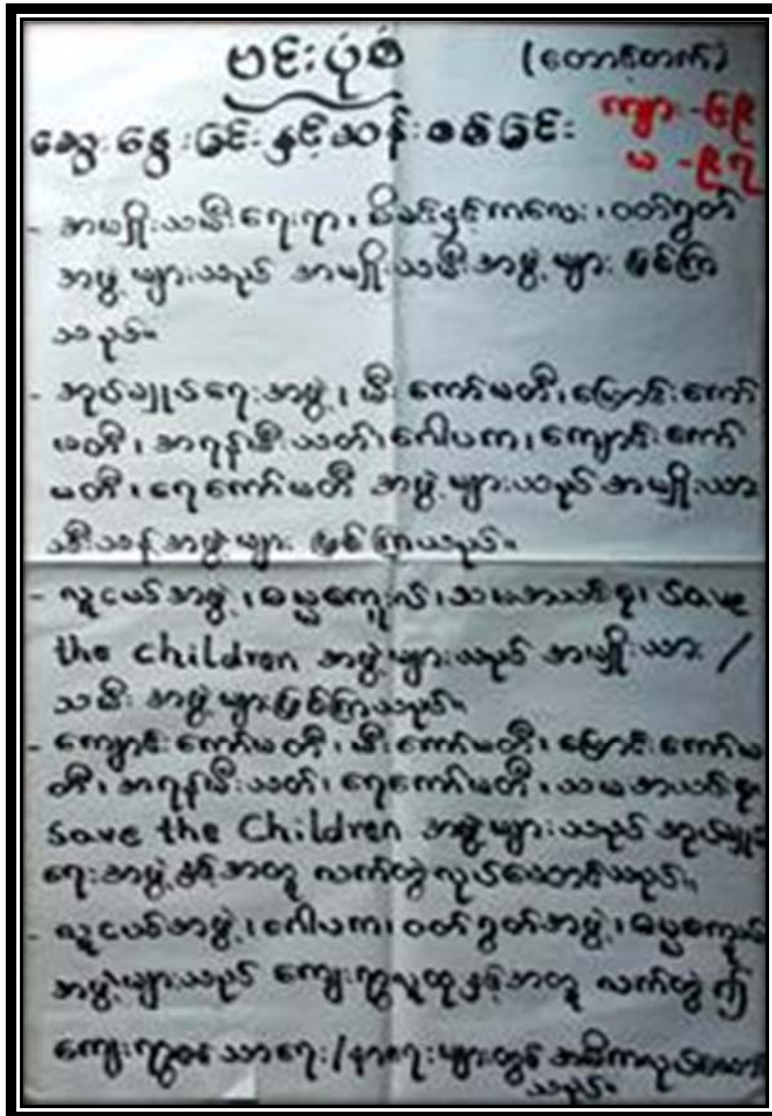 ဗင်းပုံစံ (တောင်တက်)
ဆွေးနွေးခြင်းနှင့်ဆန်းစစ်ခြင်း ကျား - ၆၉
မ - ၉၇
- အမျိုးသမီးရေးရာ၊ မိခင်နှင့်ကလေး၊ ဝတ်ရွတ်
အဖွဲ့များသည် အမျိုးသမီးအဖွဲ့များ ဖြစ်ကြ
သည်။
- အုပ်ချုပ်ရေးအဖွဲ့၊ မီးကော်မတီ၊ မြောင်းကော်
မတီ၊ အရန်မီးသတ်၊ ဂေါပက၊ ကျောင်းကော်
မတီ၊ ရေကော်မတီ အဖွဲ့များသည် အမျိုးသား
သီးသန့်အဖွဲ့များ ဖြစ်ကြသည်။
- လူငယ်အဖွဲ့၊ ဓမ္မစကူးလ်၊ သမအသင်းစု၊ Save
the children အဖွဲ့များသည် အမျိုးသား /
သမီး အဖွဲ့များဖြစ်ကြသည်။
- ကျောင်းကော်မတီ၊ မီးကော်မတီ၊ မြောင်းကော်မ
တီ၊ အရန်မီးသတ်၊ ရေကော်မတီ၊
Save the Children အဖွဲ့များသည် အုပ်ချုပ်
ရေးအဖွဲ့နှင့်အတူ လက်တွဲလုပ်ဆောင်သည်။
- လူငယ်အဖွဲ့၊ ဂေါပက၊ ဝတ်ရွတ်အဖွဲ့၊ ဓမ္မစကူးလ်
အဖွဲ့များသည် ကျေးရွာလူထုနှင့်အတူ လက်တွဲ၍
ကျေးရွာ သာရေး/နာရေးများတွင် အဓိကလုပ်ဆောင်
သည်။